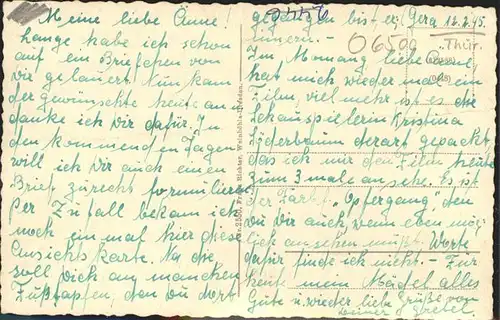 Meine liebe Anne!
Lange habe ich schon
auf ein Briefchen von
Dir gelauert. Nun kam
der gewünschte heute an u.
danke ich Dir dafür. In
den kommenden Tagen
will ich Dir auch einen
Brief zurecht formulieren.
Per Zufall bekam ich
noch ein mal hier diese
Ansichtskarte. Na die
soll Dich an manchen
Fußtapfen, den Du dort
Nr. 2550, Franz Richter, Weinböhla-Dresden.
gegangen bist er-
innern.-
Gera 12.2.45.
Thür.
06500
Im Momang liebe Anne,
hat mich wieder mal ein
Film, viel mehr ist es die
Schauspielerin Kristina
Söderbaum derart gepackt,
das ich mir den Film heute
zum 3 male an sehe. Es ist
der Farbf. "Opfergang" den
Du Dir auch, wenn eben mög-
lich ansehen mußt. Worte
dafür finde ich nicht. - Für
heute mein Mädel alles
Gute u. wieder liebe Grüße von
Deiner Gretel.